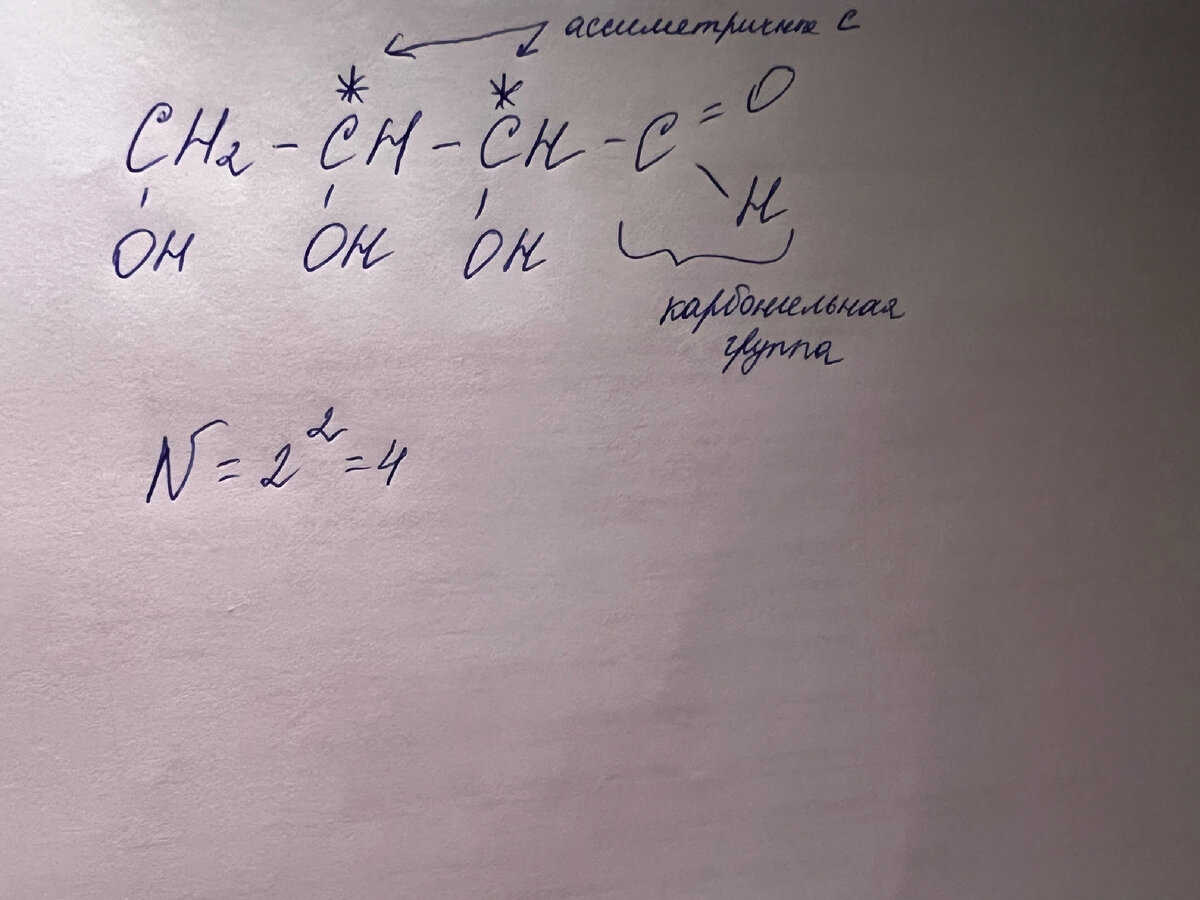 ассиметричные C
* *
CH₂ – CH – CH – C = O
\ H
OH OH OH
карбонильная
группа
N = 2² = 4